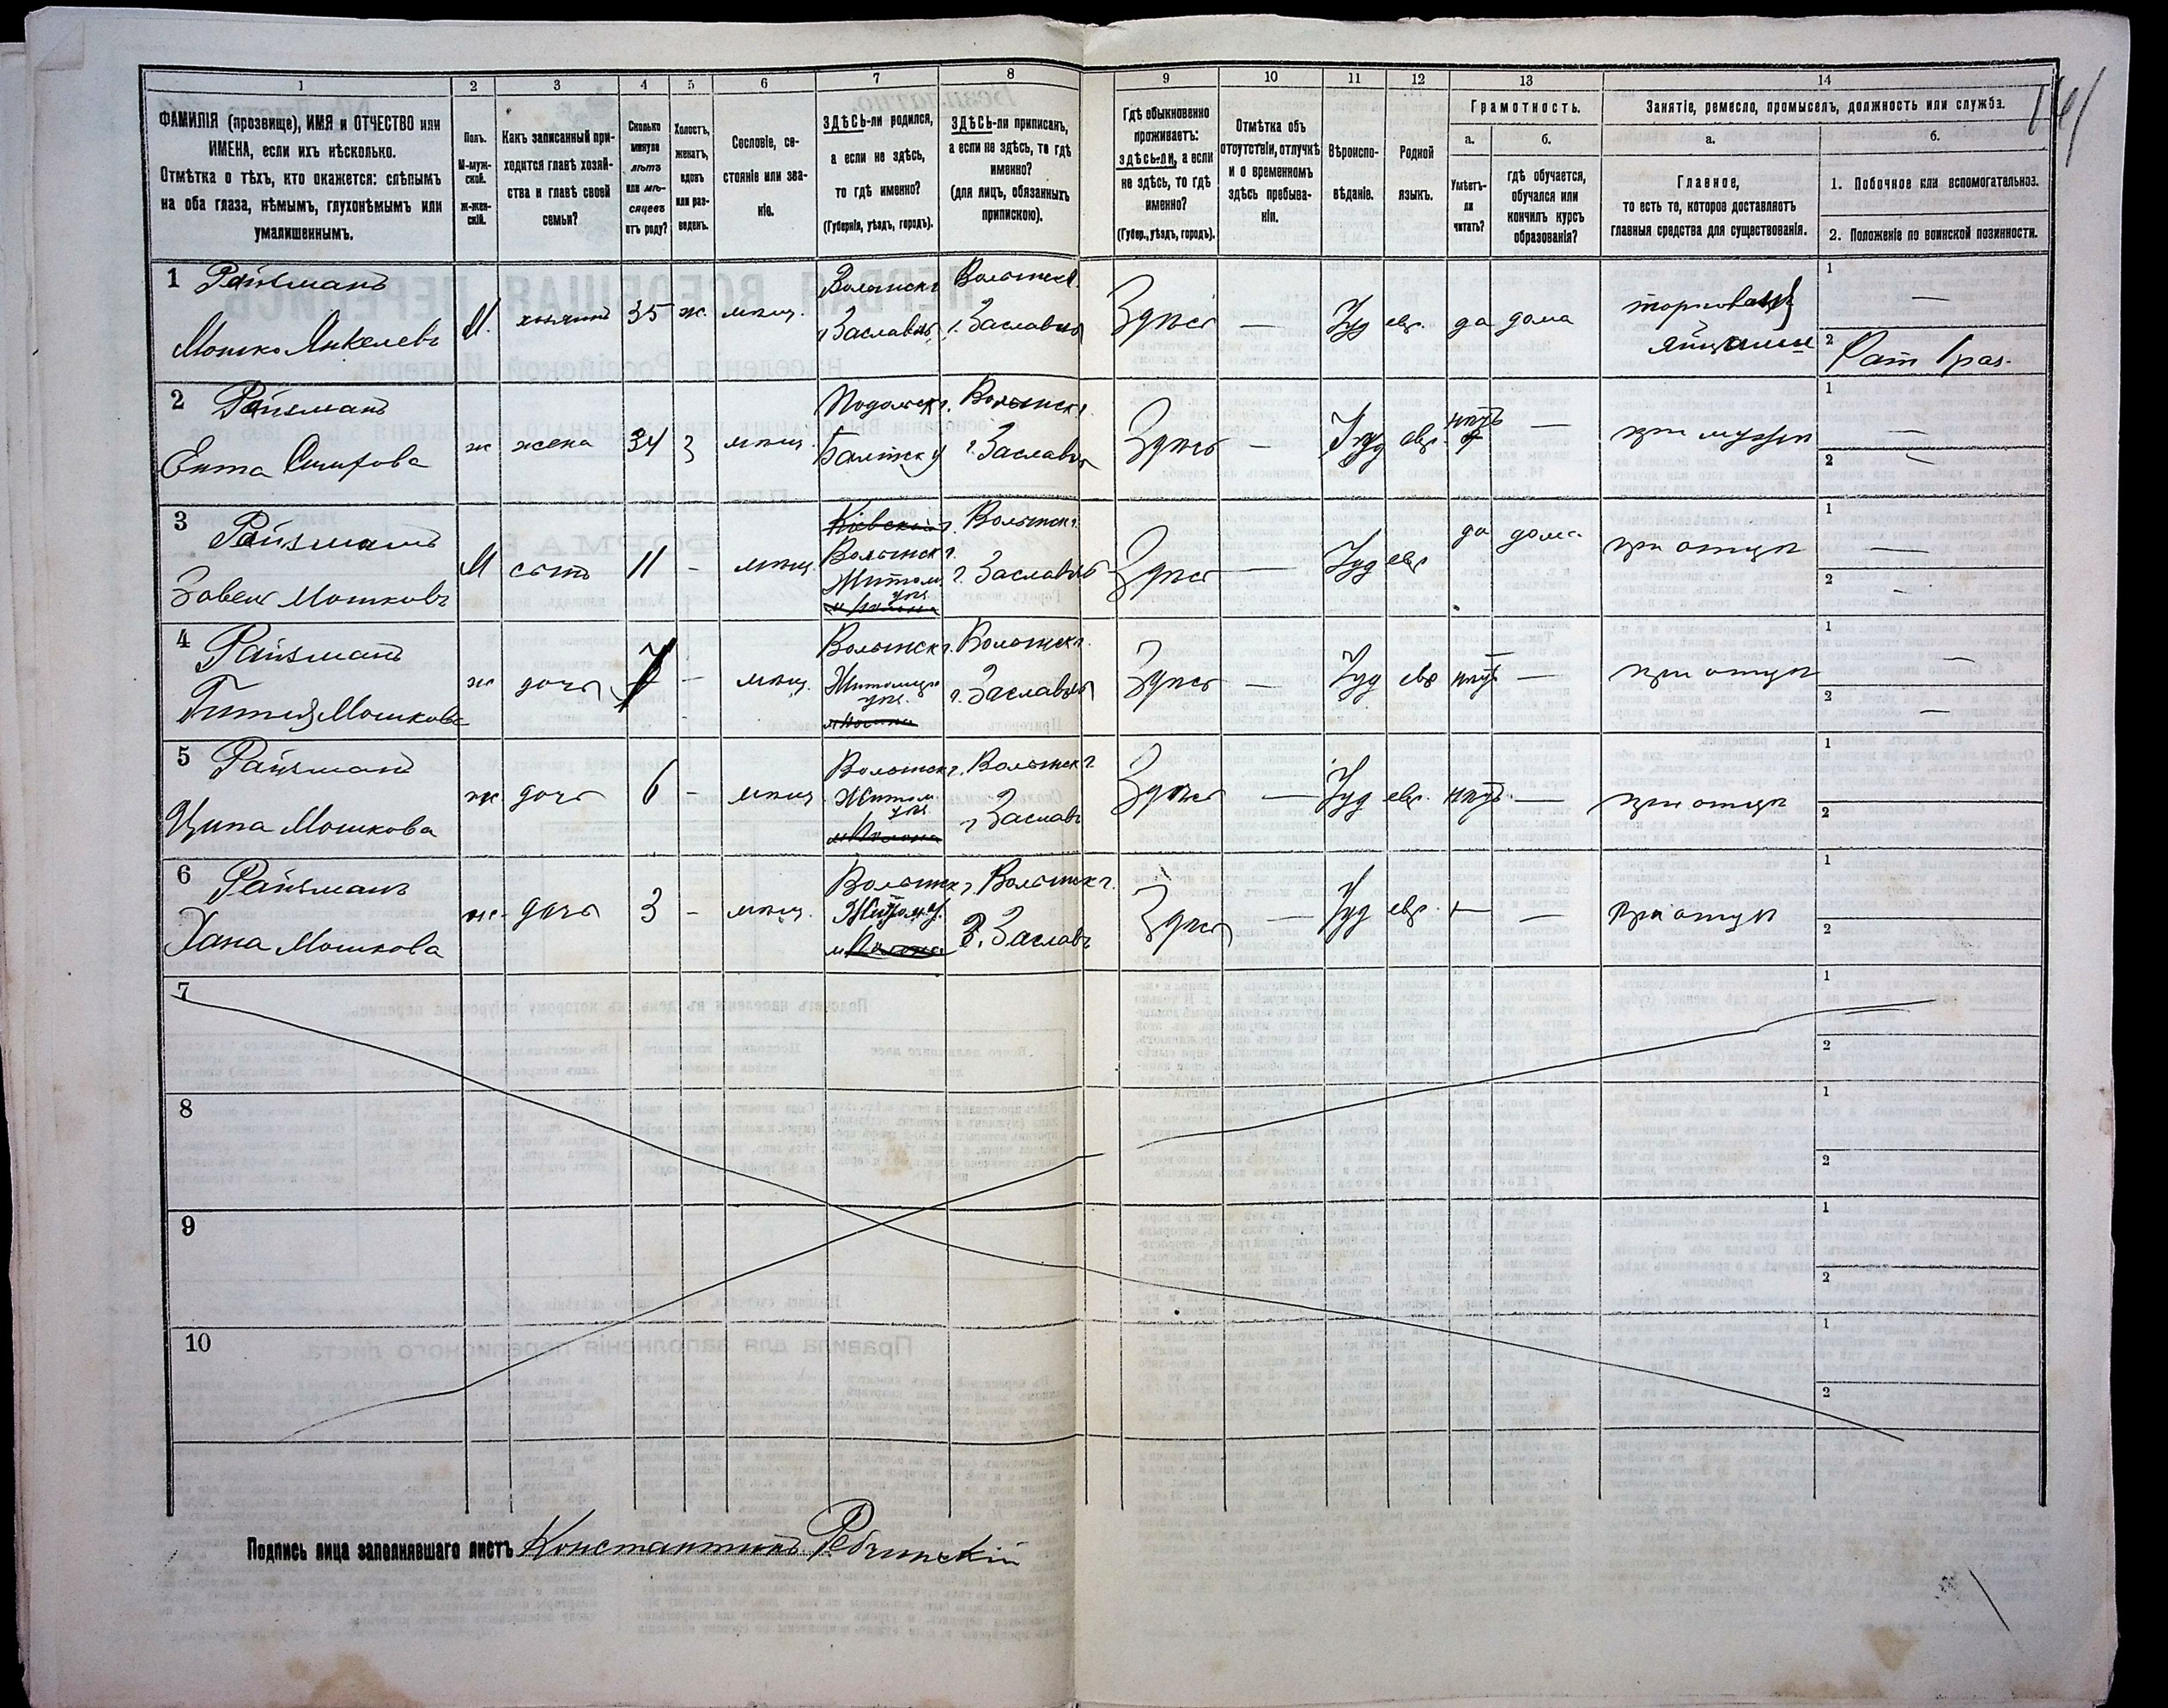 1 2 3 4 5 6 7 8 9 10 11 12 13 14
ФАМИЛІЯ (прозвище), ИМЯ и ОТЧЕСТВО или
ИМЕНА, если ихъ нѣсколько.
Отмѣтка о тѣхъ, кто окажется: слѣпымъ
на оба глаза, нѣмымъ, глухонѣмымъ или
умалишеннымъ.
Полъ.
М-муж-
ской.
ж-жен-
скій.
Какъ записанный при-
ходится главѣ хозяй-
ства и главѣ своей
семьи?
Сколько
минуло
лѣтъ
или мѣ-
сяцевъ
отъ роду?
Холостъ,
женатъ,
вдовъ
или раз-
веденъ.
Сословіе, со-
стояніе или зва-
ніе.
ЗДѢСЬ-ли родился,
а если не здѣсь,
то гдѣ именно?
(Губернія, уѣздъ, городъ).
ЗДѢСЬ-ли приписанъ,
а если не здѣсь, то гдѣ
именно?
(для лицъ, обязанныхъ
припискою).
Гдѣ обыкновенно
проживаетъ:
здѣсь-ли, а если
не здѣсь, то гдѣ
именно?
(Губер., уѣздъ, городъ).
Отмѣтка объ
отсутствіи, отлучкѣ
и о временномъ
здѣсь пребыва-
ніи.
Вѣроиспо-
вѣданіе.
Родной
языкъ.
Грамотность.
а.
Умѣетъ-
ли
читать?
б.
гдѣ обучается,
обучался или
кончилъ курсъ
образованія?
Занятіе, ремесло, промыселъ, должность или служба.
а.
Главное,
то есть то, которое доставляетъ
главныя средства для существованія.
б.
1. Побочное или вспомогательное.
2. Положеніе по воинской повинности.
1 Райзманъ
Мошко Янкелевъ
М. хозяинъ 35 ж. мѣщ.
Волынск г.
г. Заславль
Волынск г.
г. Заславль
Здѣсь — Іуд евр. да дома
торговецъ
яйцами
1 —
2 Рат 1 раз.
2 Райзманъ
Ента
ж жена 34 З мѣщ.
Подольск г.
Балтск у
Волынск г.
г. Заславль
Здѣсь — Іуд евр. нѣтъ — при мужѣ
1 —
2 —
3 Райзманъ
Завель Мошковъ
М сынъ 11 - мѣщ.
Кіевской г.
Волынск г.
Житом.
уѣз.
Волынск г.
г. Заславль
Здѣсь — Іуд евр да дома при отцѣ
1 —
2 -
4 Райзманъ
Гитля Мошкова
ж дочь 7 - мѣщ.
Волынск г.
Житомир
уѣз.
Волынск г.
г. Заславль
Здѣсь — Іуд евр нѣтъ — при отцѣ
1 —
2 —
5 Райзманъ
Ципа Мошкова
ж дочь 6 - мѣщ.
Волынск г.
Житом.
уѣз.
Волынск г.
г Заславъ
Здѣсь — Іуд евр. нѣтъ — при отцѣ
1
2
6 Райзманъ
Хана Мошкова
ж. дочь 3 - мѣщ.
Волынск г.
Волынск г.
г. Заславъ
Здѣсь — Іуд евр. — — при отцѣ
1
2
7
1
2
8
1
2
9
1
2
10
1
2
Подпись лица заполнявшаго листъ Константинъ